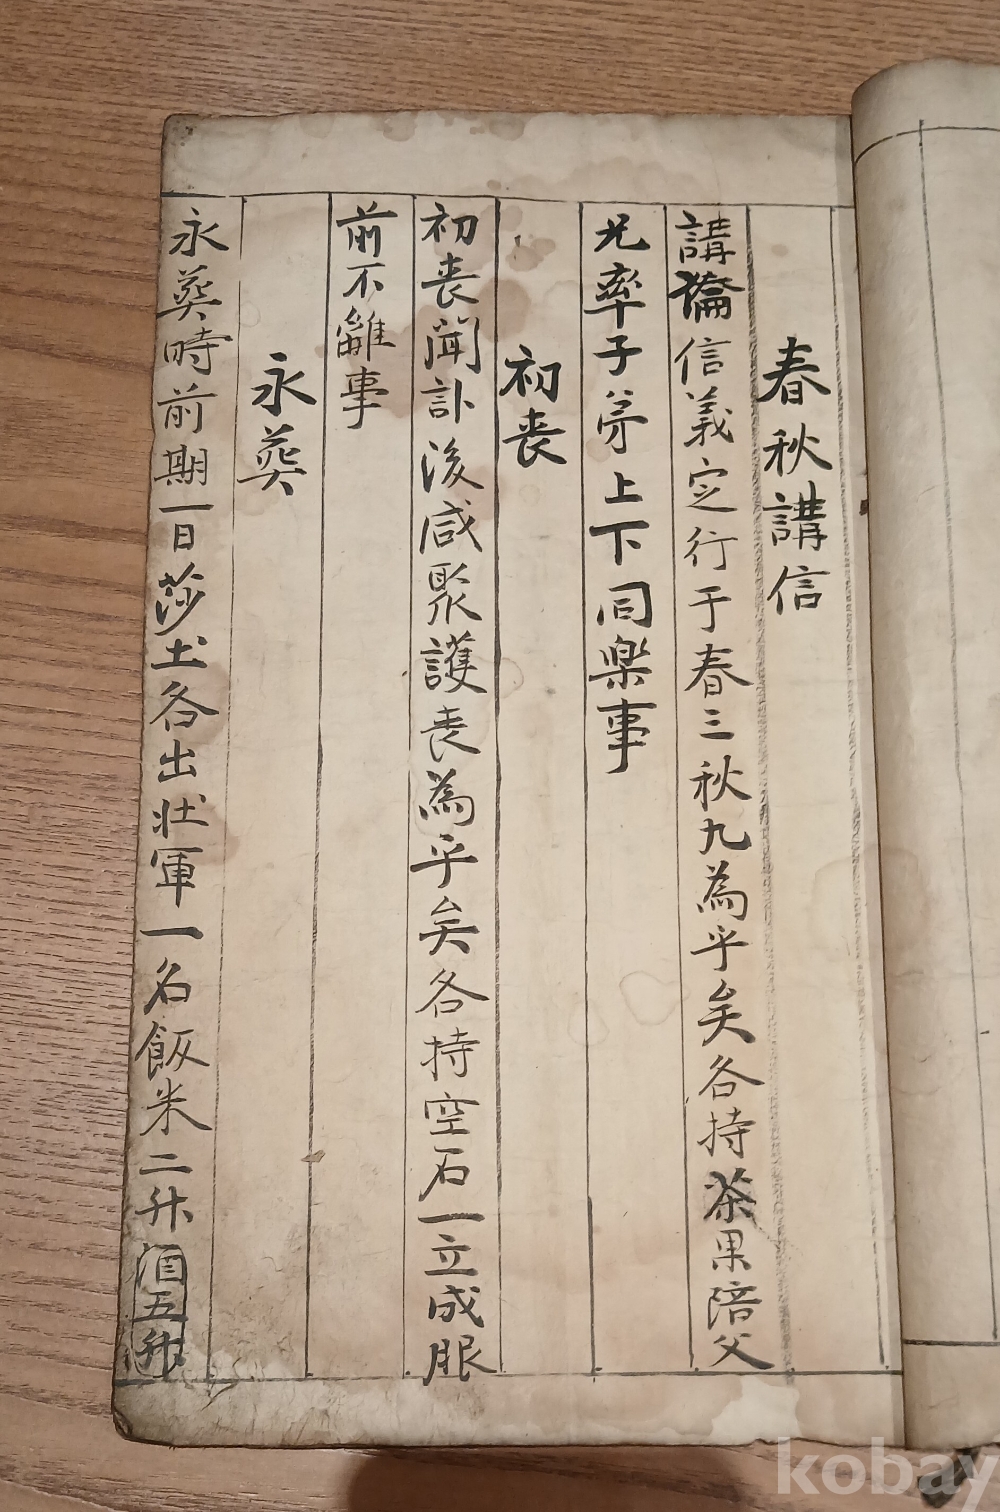 春秋講信
講論信義定行于春三秋九為乎矣各持茶果陪父
兄率子弟上下同樂事
初丧
初丧聞訃後咸聚護丧為乎矣各持空石一立成服
前不離事
永葬
永葬時前期一日莎土各出壯軍一名飯米二升酒五升
kobay